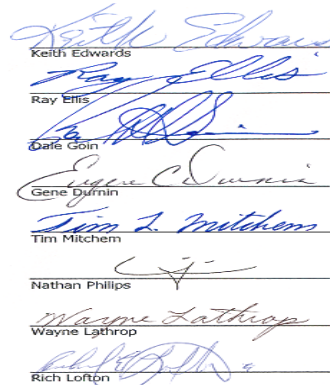 Keith Edwards
Keith Edwards
Ray Ellis
Ray Ellis
Dale Goin
Eugene C Durnin
Gene Durnin
Tim L. Mitchem
Tim Mitchem
Nathan Philips
Wayne Lathrop
Wayne Lathrop
Rich Lofton